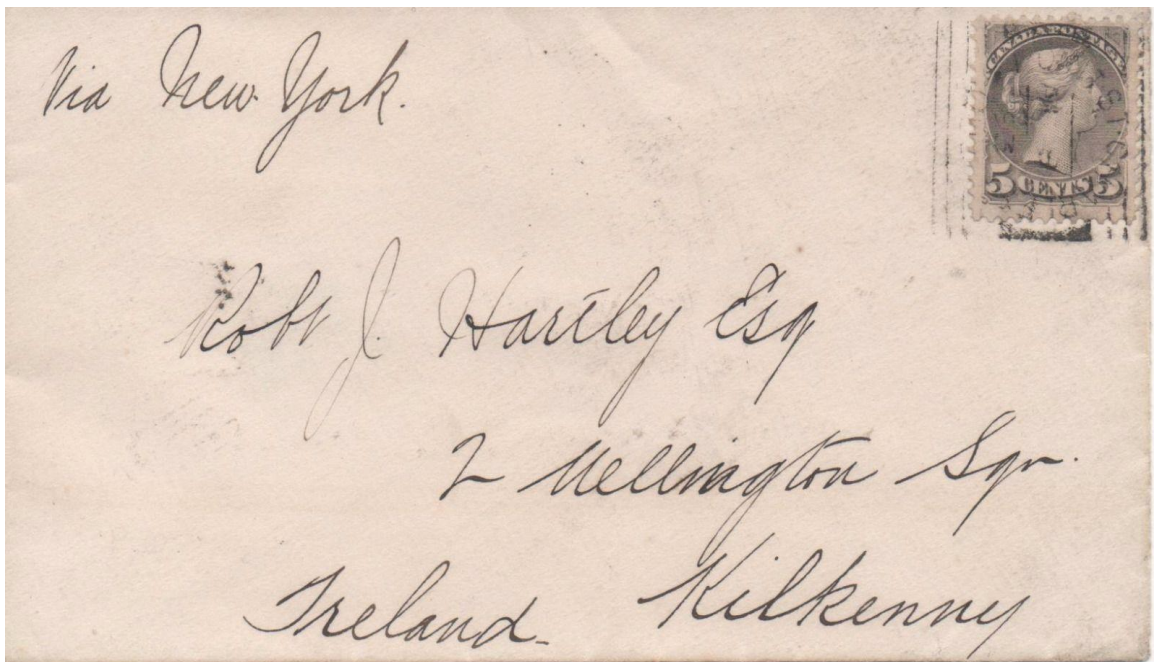 Via New York.
CANADA POSTAGE
5 CENTS 5
Robt J. Hartley Esq
2 Wellington Sqr.
Kilkenny
Ireland